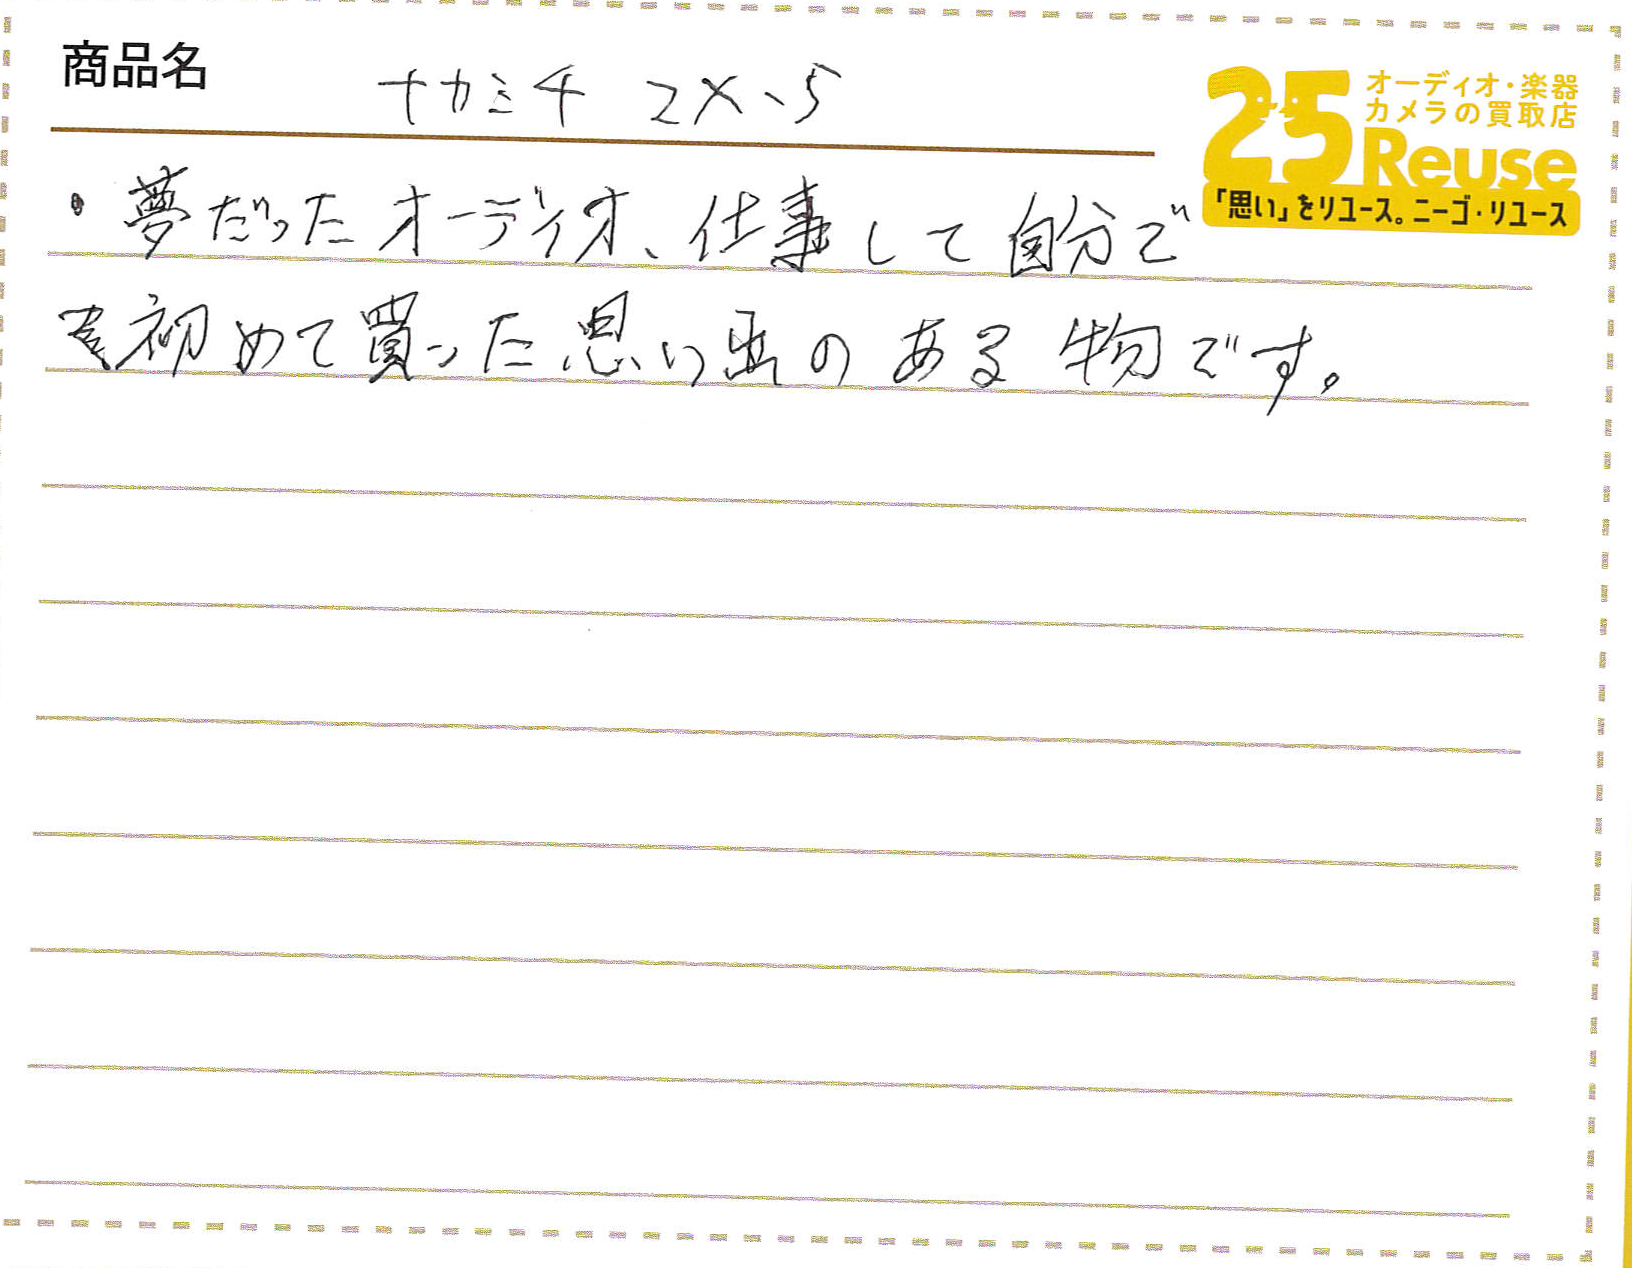 商品名
ナカミチ ZX-5
25
オーディオ・楽器
カメラの買取店
Reuse
「思い」をリユース。ニーゴ・リユース
・夢だったオーディオ、仕事して自分で
初めて買った思い出のある物です。